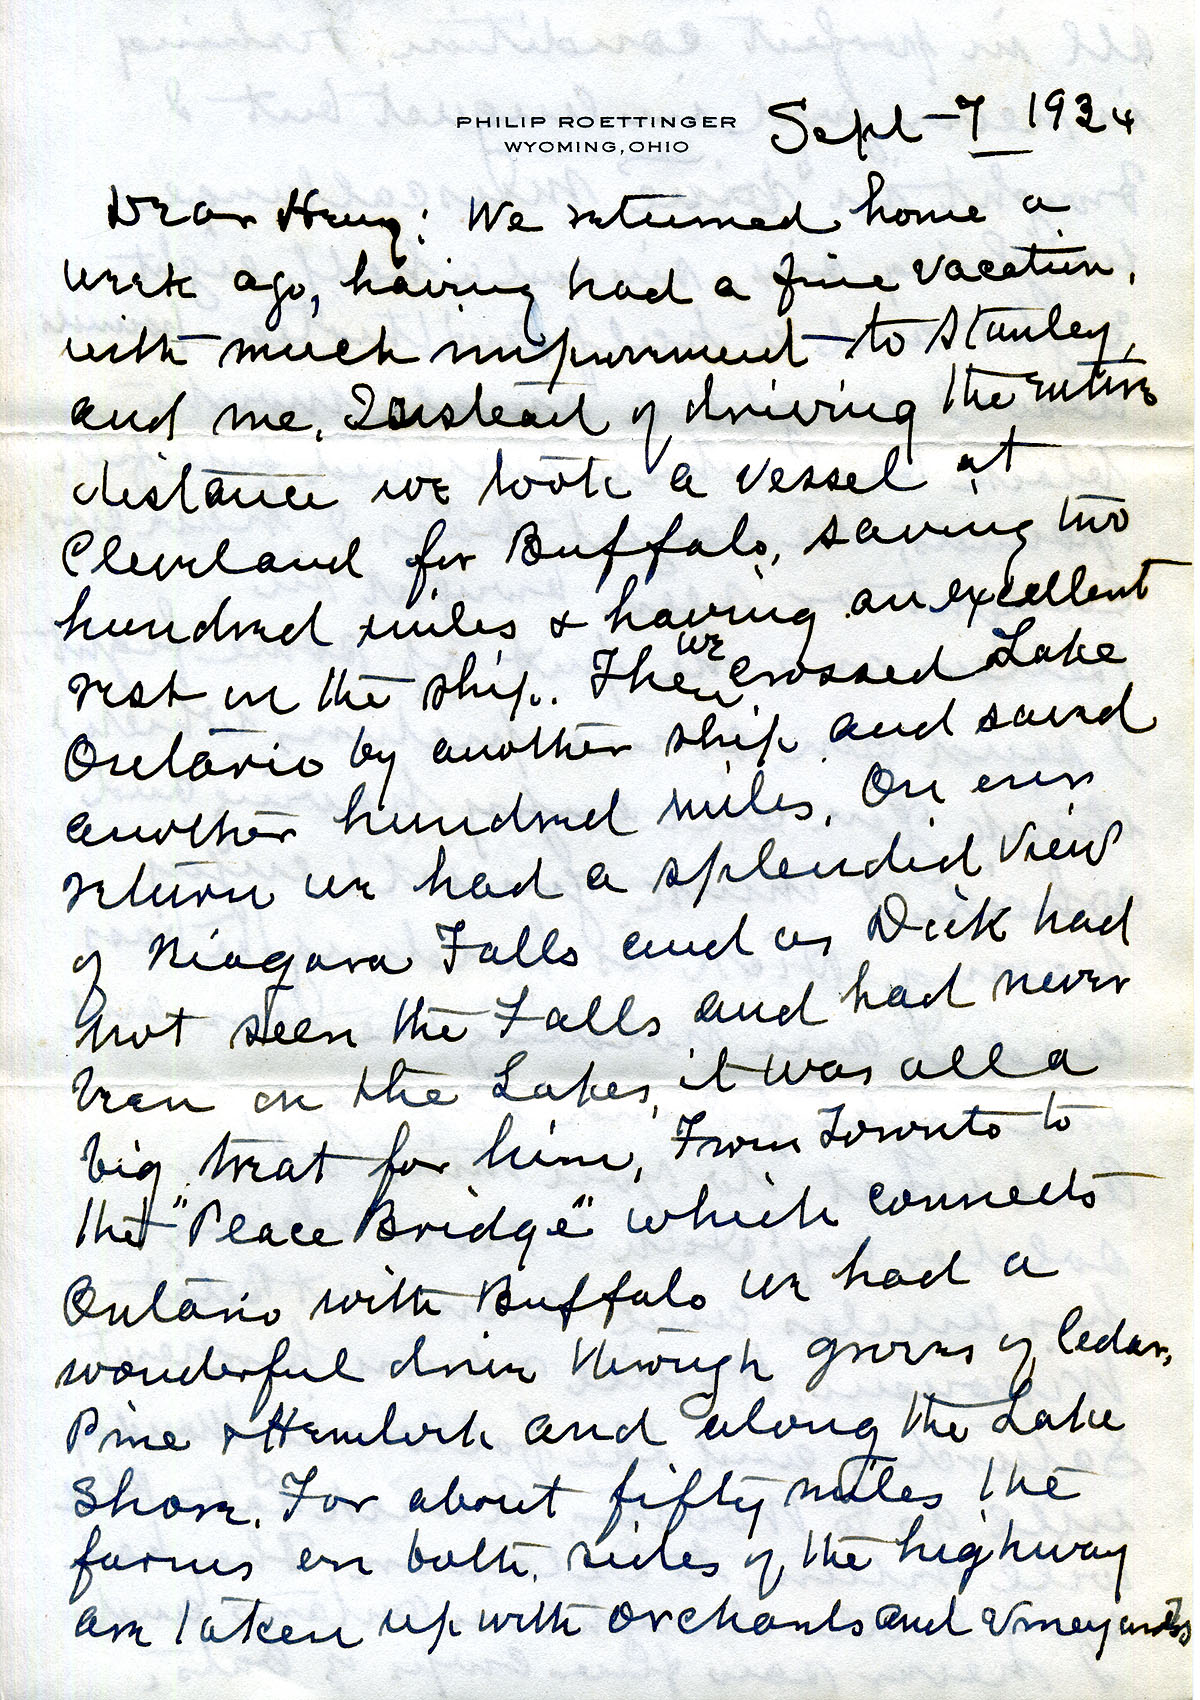 PHILIP ROETTINGER
WYOMING, OHIO
Sept-7 1934
Dear Henry: We returned home a
week ago, having had a fine vacation,
with much improvement to Stanley,
and me. Instead of driving the entire
distance we took a vessel at
Cleveland for Buffalo, saving two
hundred miles & having an excellent
rest in the ship. Then we crossed Lake
Ontario by another ship and saved
another hundred miles. On our
return we had a splendid view
of Niagara Falls and as Dick had
not seen the Falls and had never
been on the Lakes, it was all a
big treat for him. From Toronto to
the "Peace Bridge" which connects
Ontario with Buffalo we had a
wonderful drive through groves of Cedar,
Pine & Hemlock and along the Lake
Shore. For about fifty miles the
farms on both sides of the highway
are taken up with orchards and vineyards